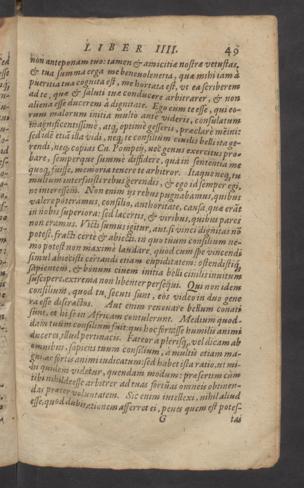 LIBER IIII. 49
non anteponam tuo: tamen & amicitiæ nostræ vetustas,
& tua summa erga me beneuolentia, quæ mihi iam à
pueritia tua cognita est, me hortata est, vt ea scriberem
ad te, quæ & saluti tuæ conducere arbitrarer, & non
aliena esse ducerem à dignitate. Ego eum te esse, qui eo-
rum malorum initia multo ante videris, consulatum
magnificentissimè, atq, optimè gesseris, præclarè memini:
sed idē etiā illa vidi, neq; te consilium ciuilis belli ita ge-
rendi, neq; copias Cn. Pompeij, nec genus exercitus pro-
bare, semperque summè diffidere. qua in sententia me
quoq, fuisse, memoria tenere te arbitror. Itaque neq, tu
multum interfuisti rebus gerendis, & ego id semper egi,
ne interessem. Non enim ijs rebus pugnabamus, quibus
valere poteramus, consilio, authoritate, causa, quæ erāt
in nobis superiora: sed lacertis, & viribus, quibus pares
non eramus. Victi sumus igitur, aut, si vinci dignitas nō
potest, fracti certè & abiecti. in quo tuum consilium ne-
mo potest non maximè laudare, quod cum spe vincendi
simul abiecisti certandi etiam cupiditatem: ostendistiq;
sapientem, & bonum ciuem initia belli ciuilis inuitum
suscipere, extrema non libenter persequi. Qui non idem
consilium, quod tu, secuti sunt, eos video in duo gene
ra esse distractos. Aut enim renouare bellum conati
sunt, et hi se in Africam contulerunt. Medium quod-
dam tuum consilium fuit: qui hoc fortasse humilis animi
duceres, illud pertinacis. Fateor a plerisq, vel dicam ab
omnibus, sapiens tuum consilium, a multis etiam ma-
gni, ac fortis animi iudicatum. sed habet ista ratio, vt mi-
hi quidem videtur, quendam modum: præsertim cum
tibi nihil deesse arbitrer ad tuas fortūas omneis obtinen-
das præter voluntatem. Sic enim intellexi, nihil aliud
esse, quod dubitationem afferret ei, penes quem est potes-
G tas